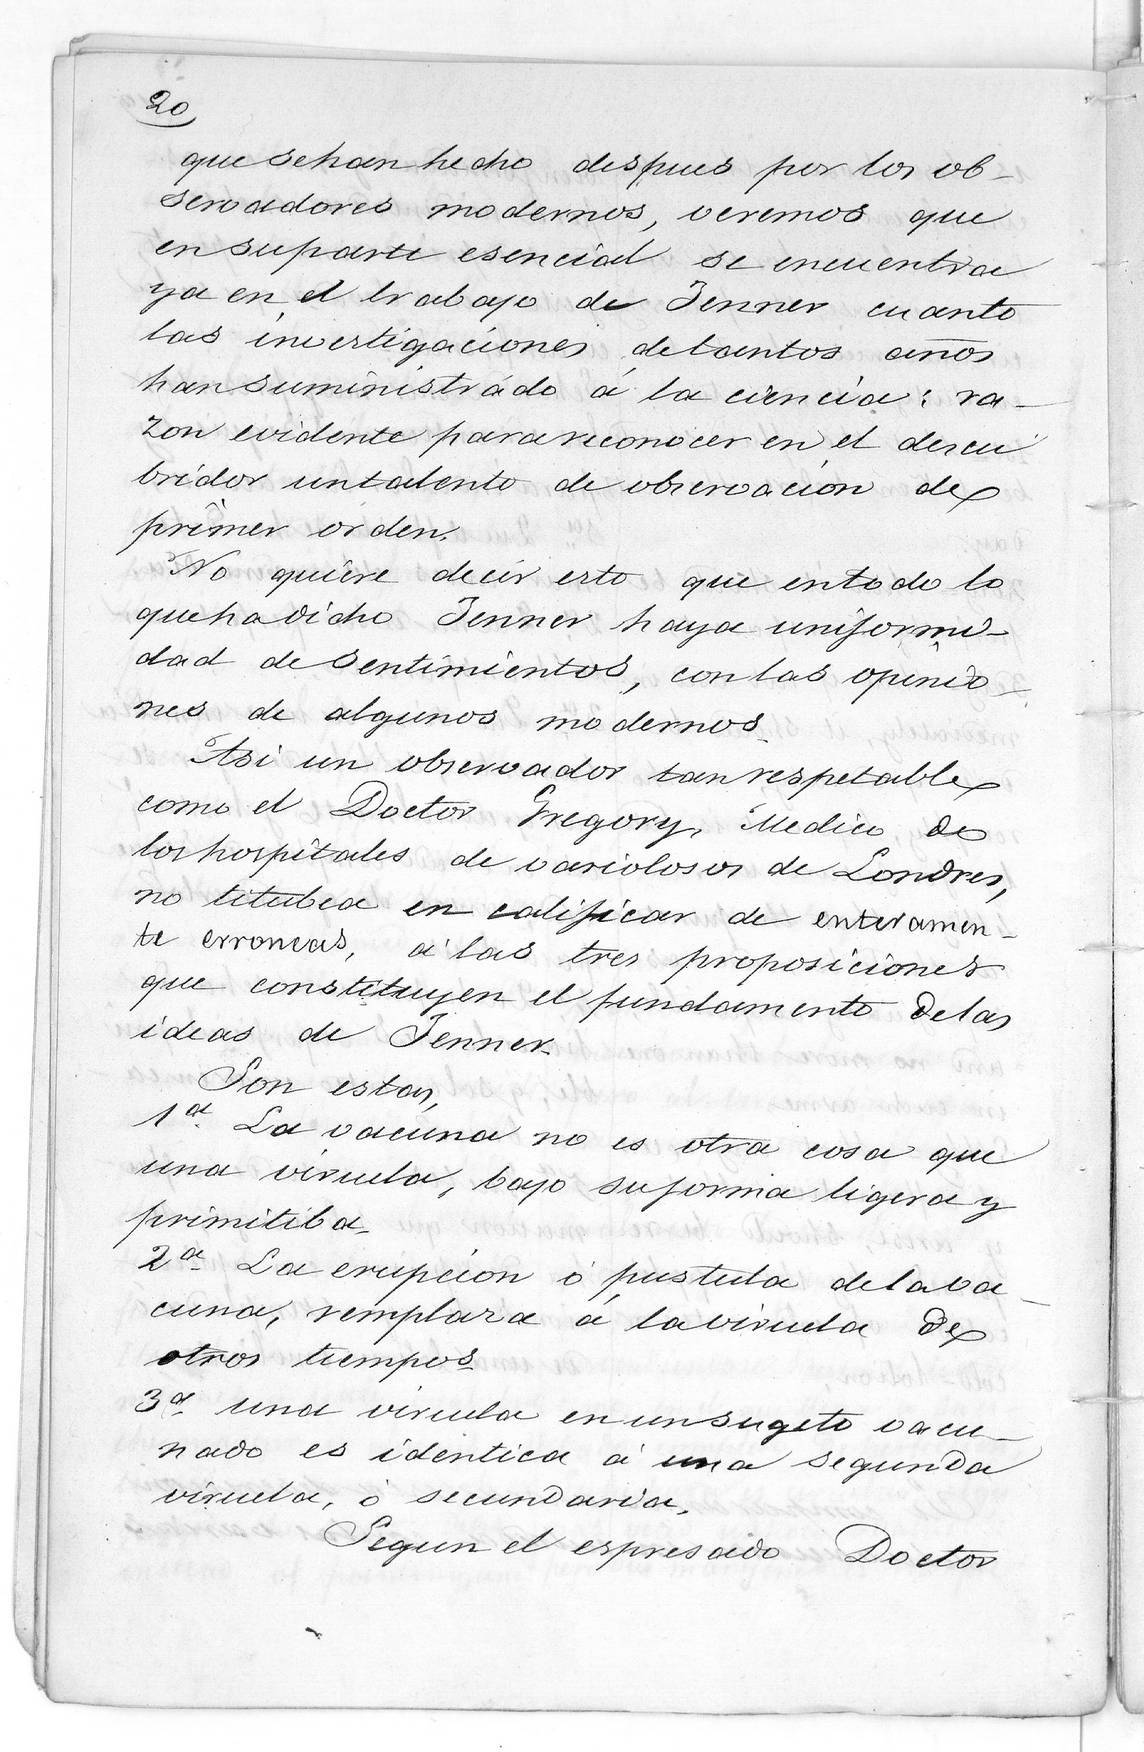 20
que se han hecho despues por los ob-
servadores modernos, veremos que
en su parte esencial se encuentra
ya en el trabajo de Jenner cuanto
las investigaciones de tantos años
han suministrado á la ciencia: ra-
zon evidente para reconocer en el descu
bridor un talento de observacion de
primer orden.
No quiere decir esto que en todo lo
que ha dicho Jenner haya uniformi-
dad de sentimientos, con las opinio-
nes de algunos modernos.
Asi un observador tan respetable
como el Doctor Gregory, Medico de
los hospitales de variolosos de Londres,
no titubea en calificar de enteramen-
te erroneas, á las tres proposiciones
que constituyen el fundamento de las
ideas de Jenner.
Son estas,
1a. La vacuna no es otra cosa que
una viruela, bajo su forma ligera y
primitiba.
2a. La erupcion ó pustula de la va-
cuna, remplaza á la viruela de
otros tiempos.
3a. una viruela en un sugeto vacu-
nado es identica á una segunda
viruela, ó secundaria.
Segun el espresado Doctor